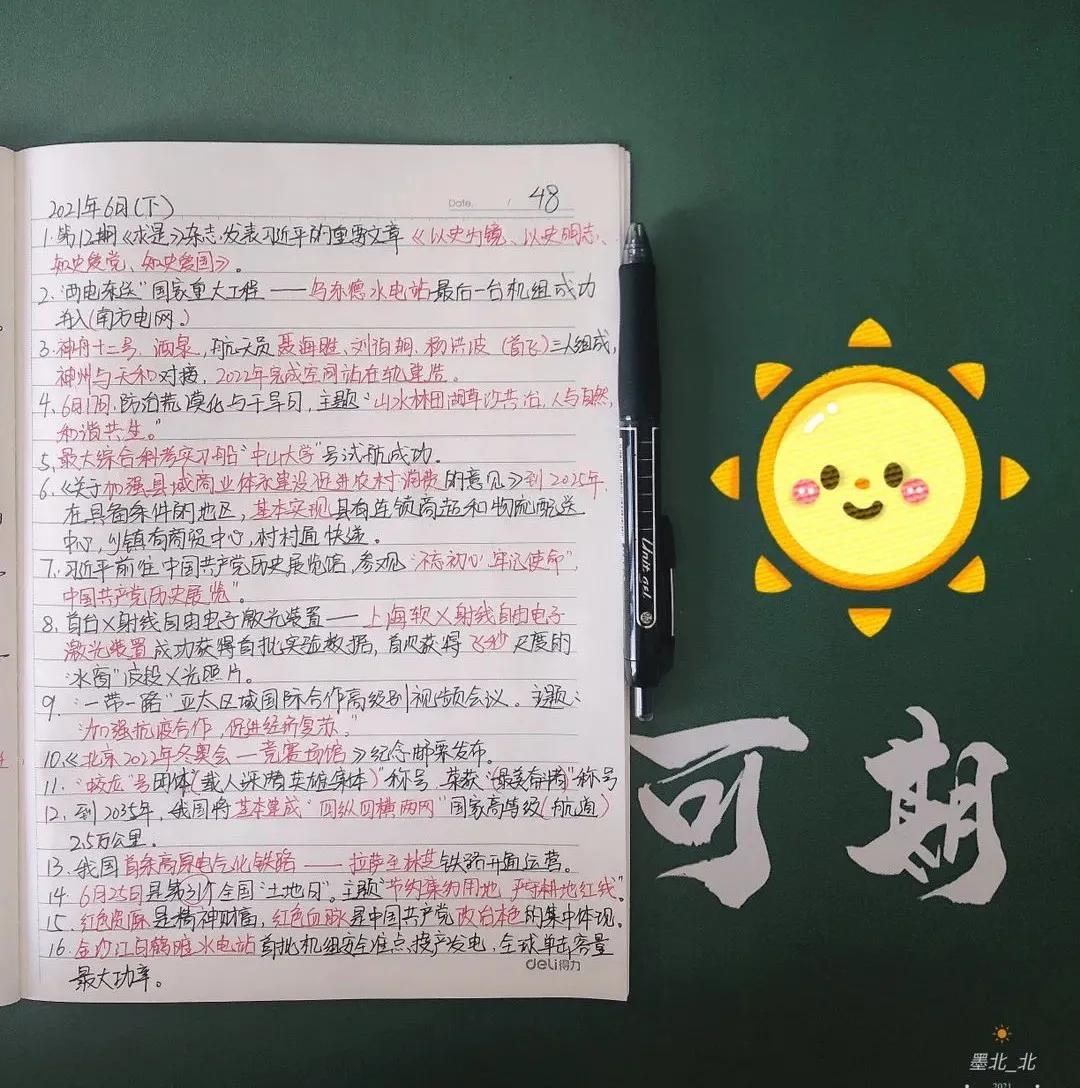 Date. /
48
2021年6月(下)
1.第12期《求是》杂志,发表习近平的重要文章《以史为镜、以史明志、
知史爱党、知史爱国》。
2.“西电东送”国家重大工程——乌东德水电站最后一台机组成功
并入(南方电网。)
3.神舟十二号,酒泉,航天员聂海胜、刘伯明、杨洪波(首飞)三人组成,
神州与天和对接,2022年完成空间站在轨建造。
4.6月17日,防治荒漠化与干旱日,主题“山水林田湖草沙共治,人与自然
和谐共生。”
5.最大综合科考实习船“中山大学”号试航成功。
6.《关于加强县域商业体系建设促进农村消费的意见》到2025年,
在具备条件的地区,基本实现县有连锁商超和物流配送
中心,乡镇有商贸中心,村村通快递。
7.习近平前往中国共产党历史展览馆,参观“不忘初心、牢记使命”
中国共产党历史展览”。
8.首台X射线自由电子激光装置——上海软X射线自由电子
激光装置成功获得首批实验数据,首次获得飞秒尺度的
“水窗”波段X光照片。
9.“一带一路”亚太区域国际合作高级别视频会议。主题:
“加强抗疫合作,促进经济复苏。”
10.《北京2022年冬奥会—竞赛场馆》纪念邮票发布。
11.“蛟龙”号团体“(载人深潜英雄集体)”称号,荣获“最美奋斗者”称号
12.到2035年,我国将基本建成“四纵四横两网”国家高等级(航道)
2.5万公里.
13.我国首条高原电气化铁路——拉萨至林芝铁路开通运营。
14.6月25日是第31个全国“土地日”。主题“节约集约用地,严守耕地红线”。
15.红色资源是精神财富,红色血脉是中国共产党政治本色的集中体现。
16.金沙江白鹤滩水电站首批机组安全准点投产发电,全球单击容量
最大功率。
deli得力
Unit gel
可期
墨北_北
2021